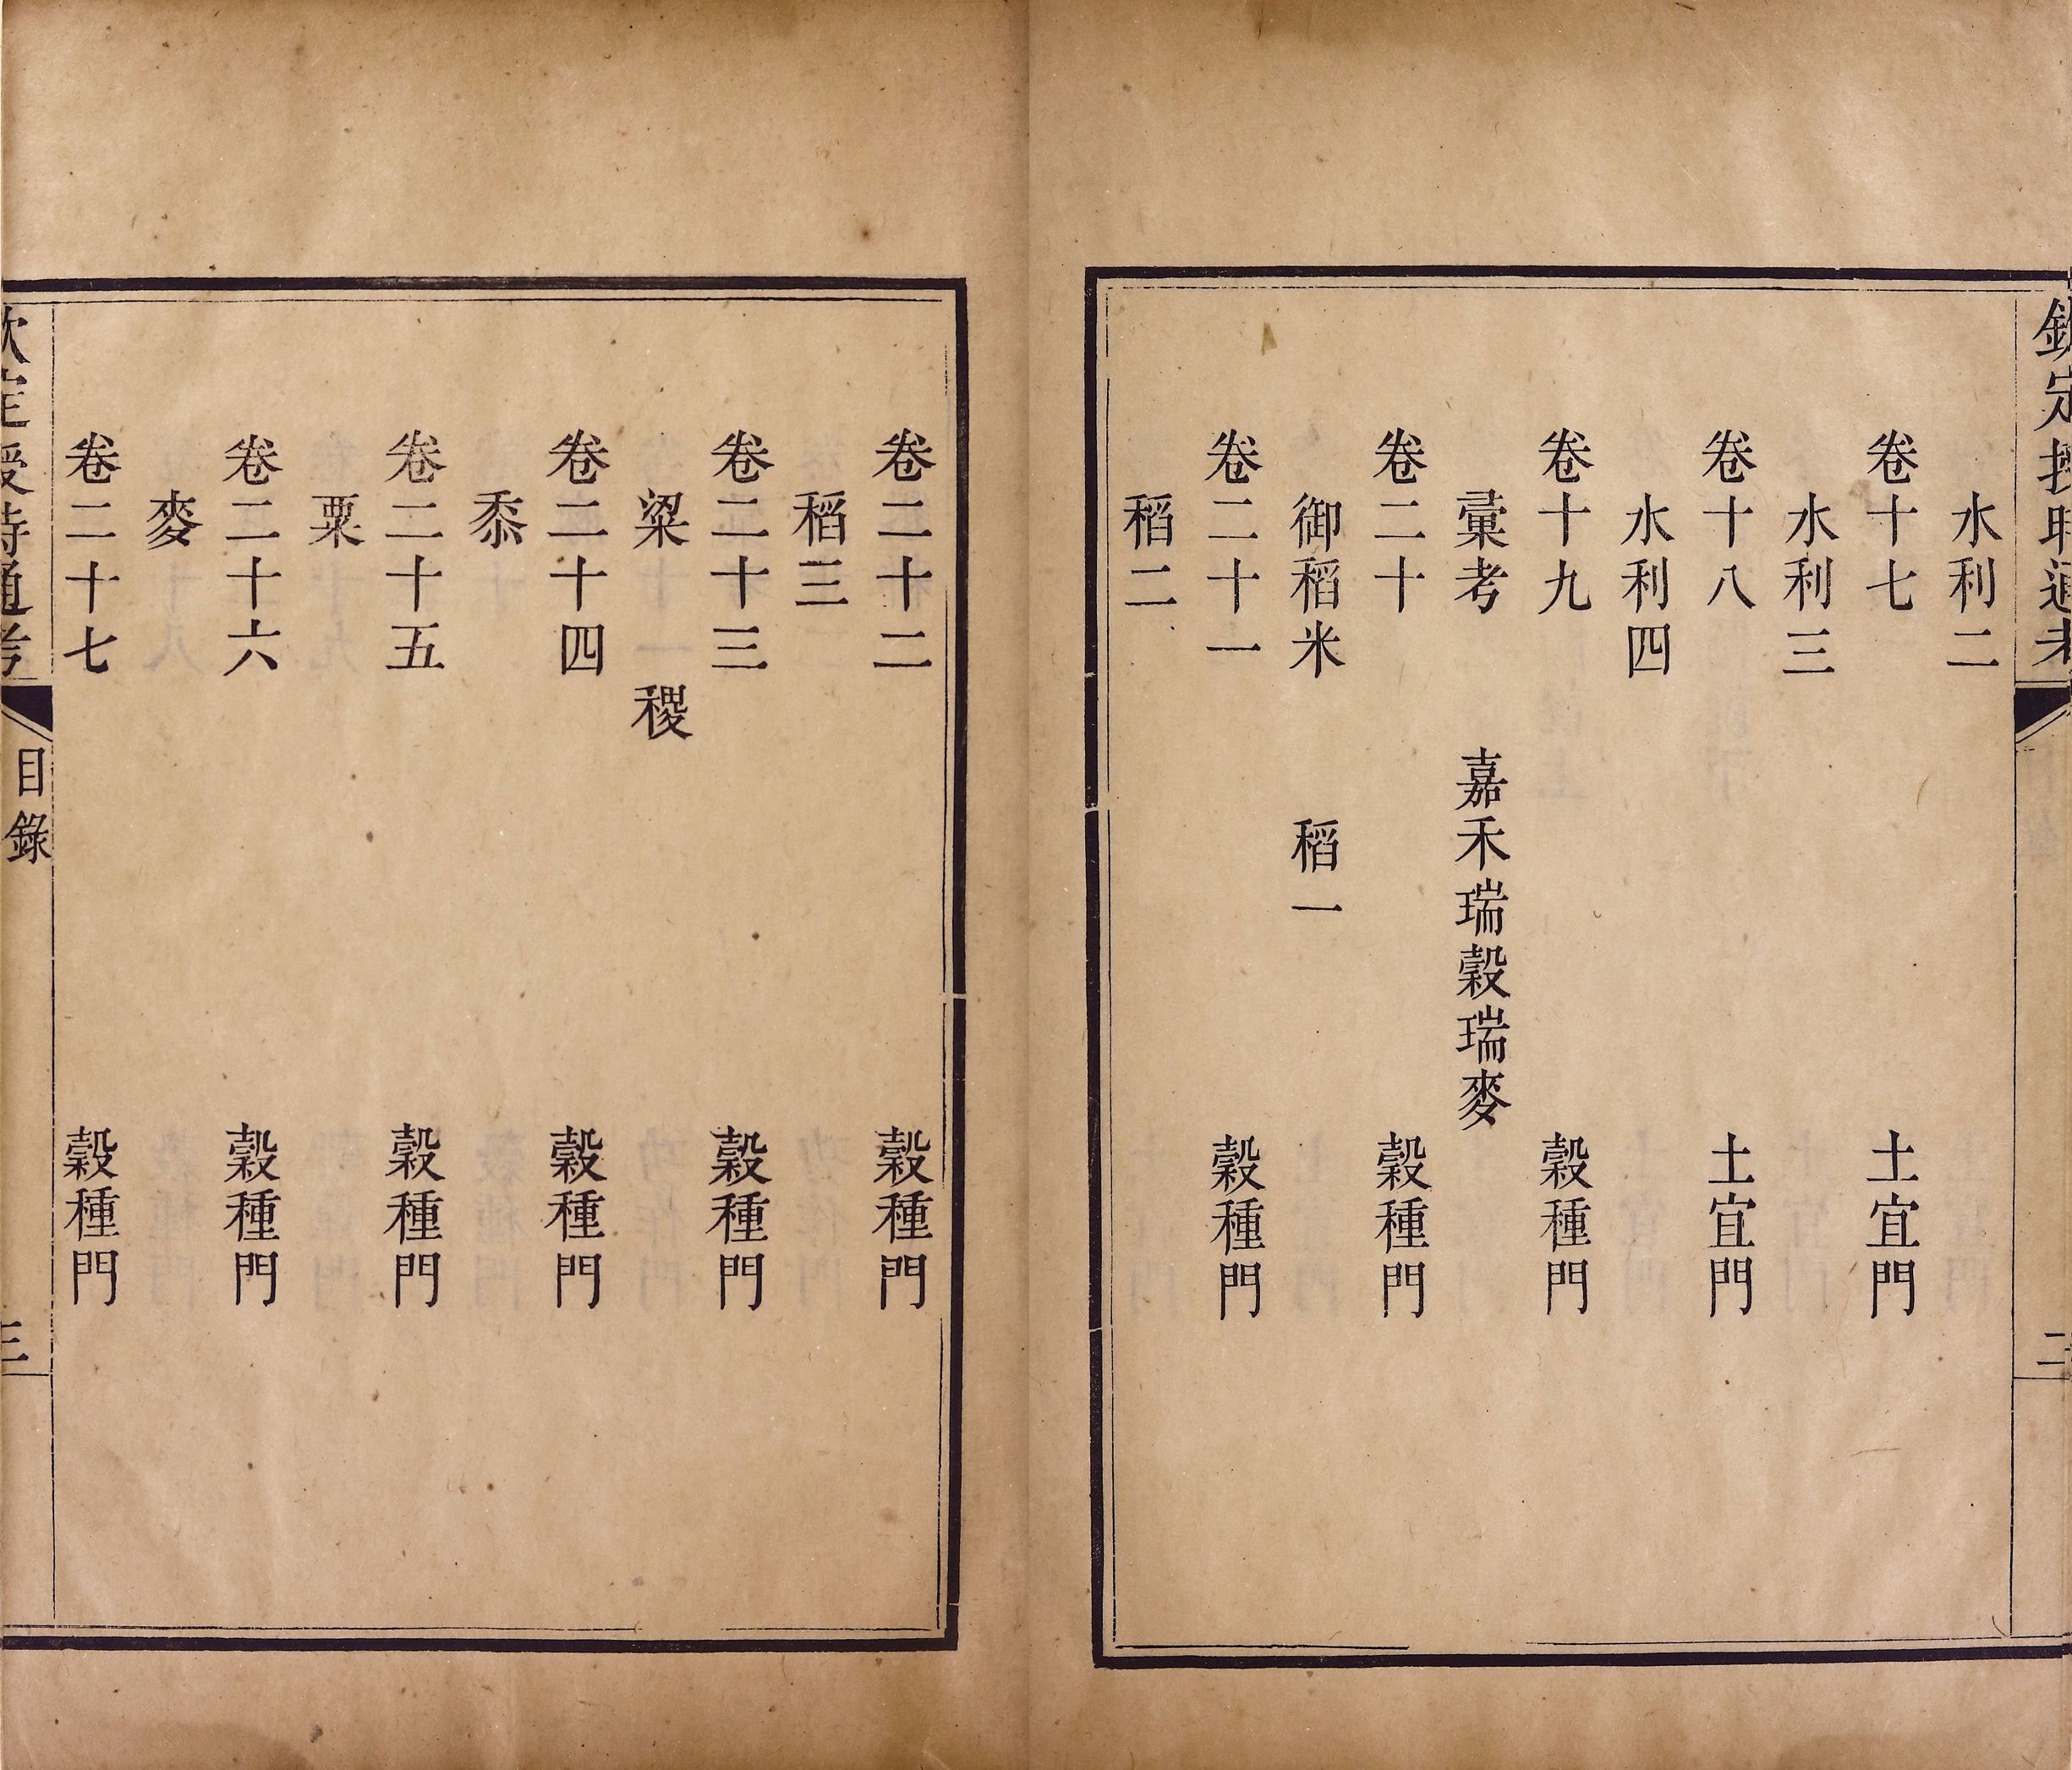 欽定授時通考
二
水利二
卷十七 土宜門
水利三
卷十八 土宜門
水利四
卷十九 穀種門
彙考 嘉禾瑞穀瑞麥
卷二十 穀種門
御稻米 稻一
卷二十一 穀種門
稻二
卷二十二 穀種門
稻三
卷二十三 穀種門
粱 稷
卷二十四 穀種門
黍
卷二十五 穀種門
粟
卷二十六 穀種門
麥
卷二十七 穀種門
欽定授時通考 目錄 三